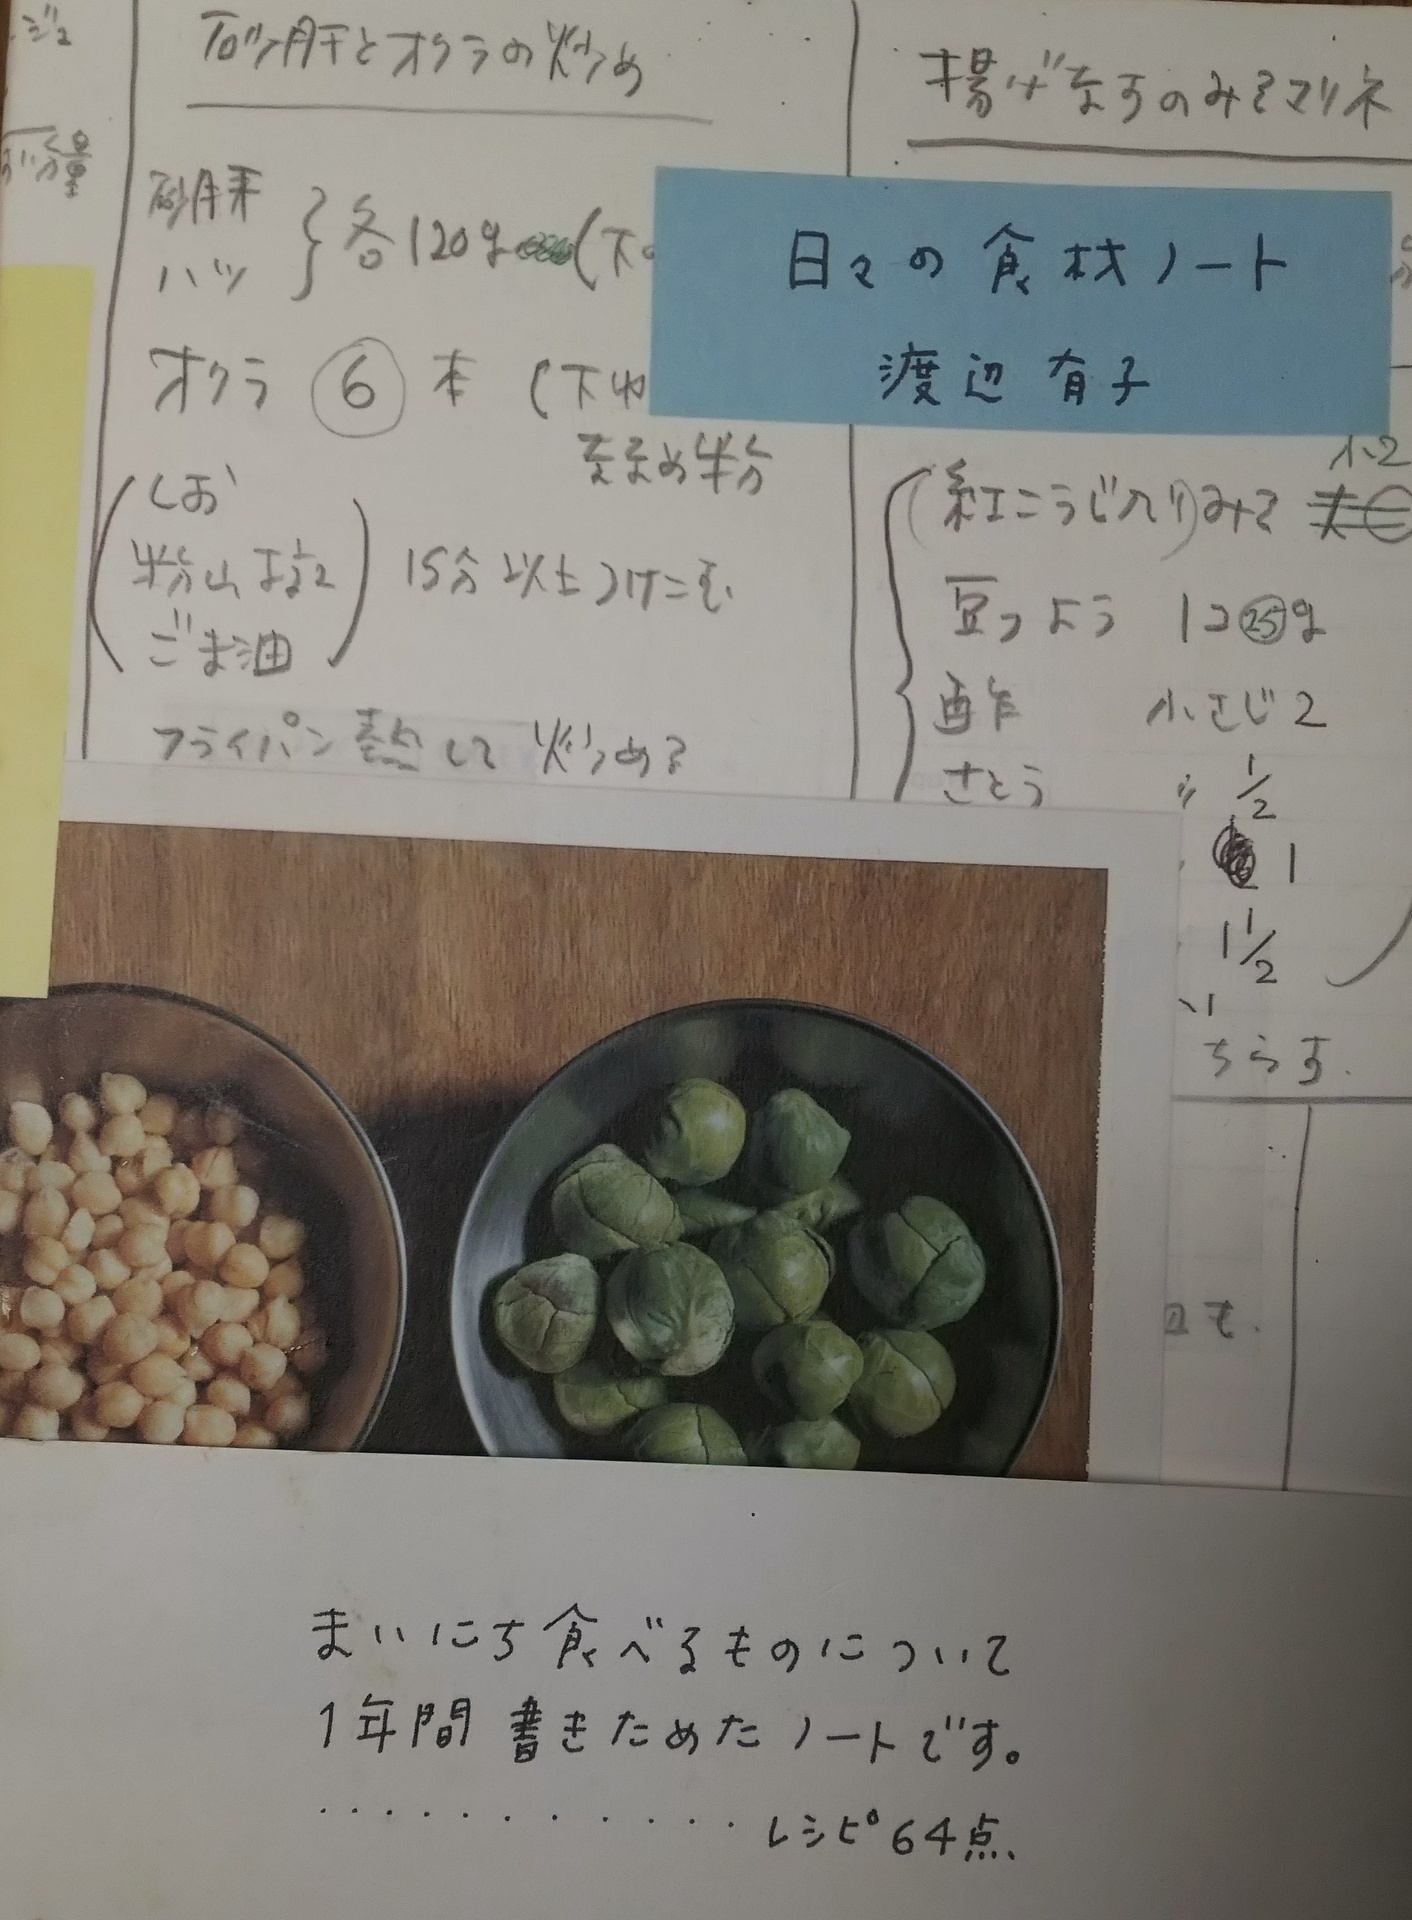 砂肝とオクラの炒め
砂肝
ハツ
各120g
オクラ ⑥ 本 (下ゆ
ななめ半分
しお
粉山椒
ごま油
15分以上つけこむ
フライパン熱して 炒める
揚げなすのみそマリネ
日々の食材ノート
渡辺有子
小2
(紅こうじ入り)みそ
酢 小さじ2
さとう 〃 1/2
1
1 1/2
ちらす.
まいにち食べるものについて
1年間書きためたノートです。
・・・・・・・・・・・・レシピ64点、